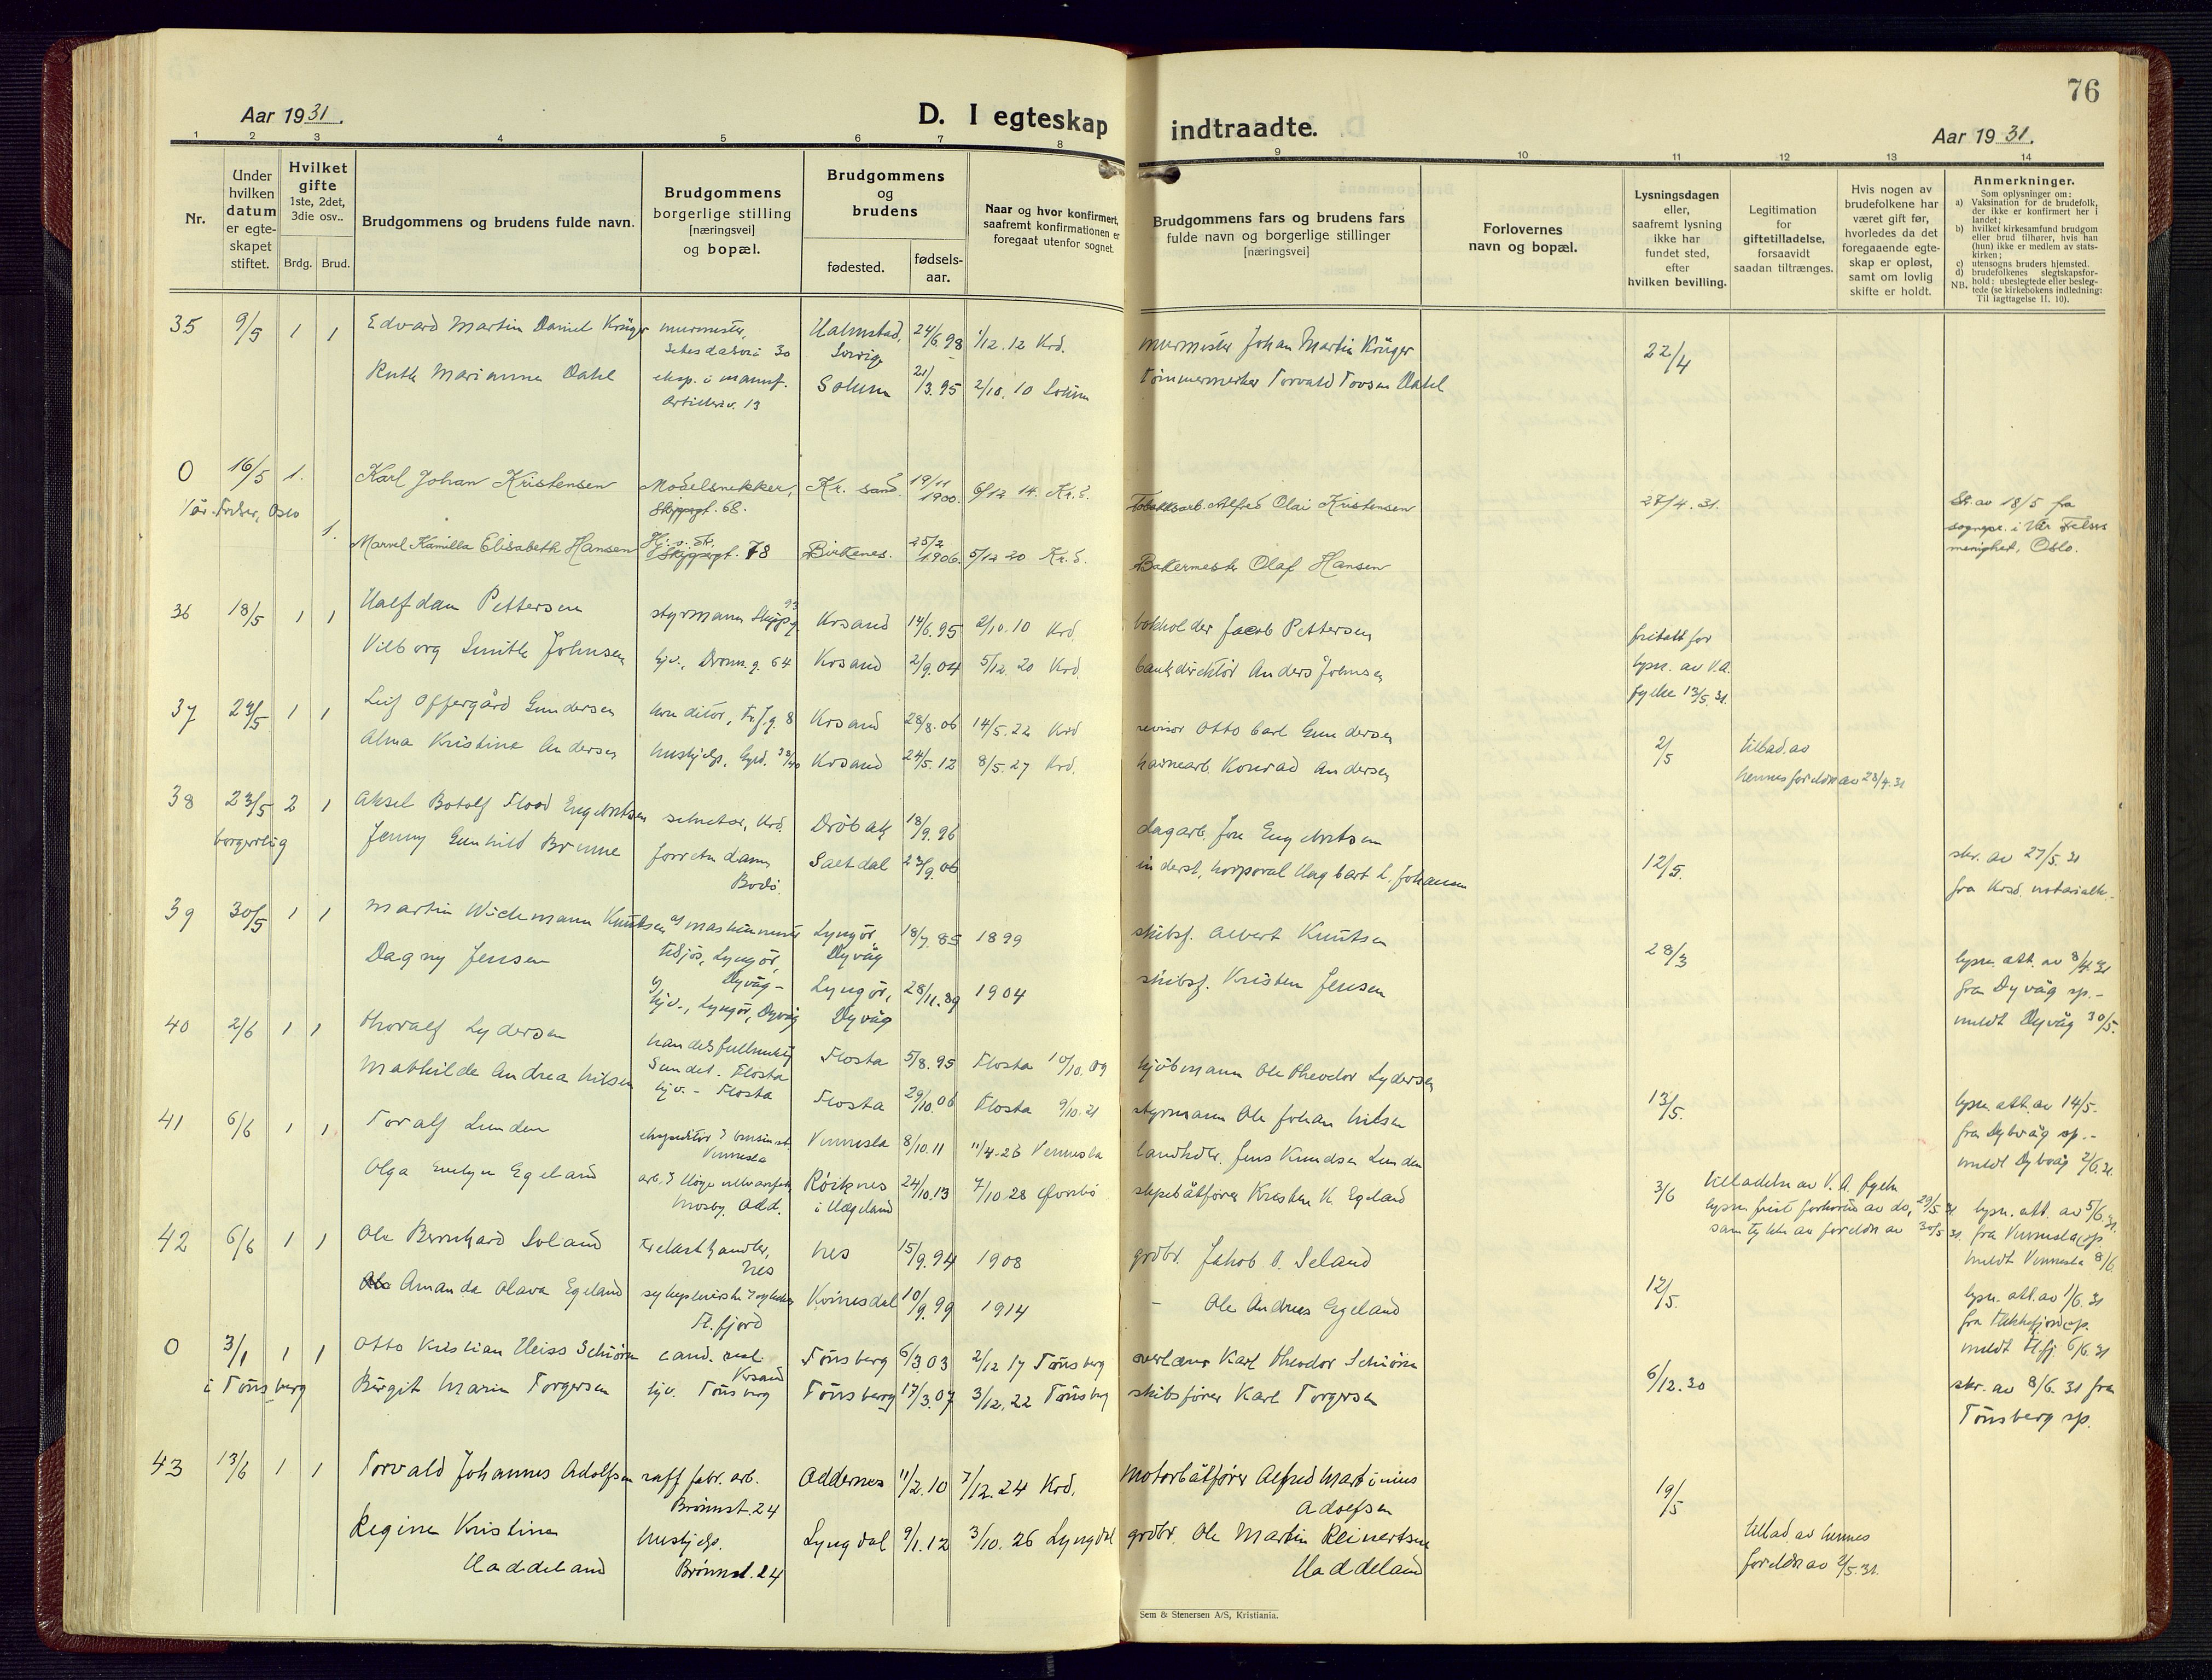 76
Aar 1931.
D. I egteskap indtraadte.
Aar 1931.
1 2 3 4 5 6 7 8 9 10 11 12 13 14
Nr.
Under hvilken datum er egteskapet stiftet.
Hvilket gifte 1ste, 2det, 3die osv..
Brdg. Brud.
Brudgommens og brudens fulde navn.
Brudgommens borgerlige stilling [næringsvei] og bopæl.
Brudgommens og brudens
fødested.
fødsels-aar.
Naar og hvor konfirmert, saafremt konfirmationen er foregaat utenfor sognet.
Brudgommens fars og brudens fars fulde navn og borgerlige stillinger [næringsvei]
Forlovernes navn og bopæl.
Lysningsdagen eller, saafremt lysning ikke har fundet sted, efter hvilken bevilling.
Legitimation for giftetilladelse, forsaavidt saadan tiltrænges.
Hvis nogen av brudefolkene har været gift før, hvorledes da det foregaaende egteskap er opløst, samt om lovlig skifte er holdt.
Anmerkninger.
Som oplysninger om:
a) Vaksination for de brudefolk, der ikke er konfirmert her i landet;
b) hvilket kirkesamfund brudgom eller brud tilhører, hvis han (hun) ikke er medlem av statskirken;
c) utensogns bruders hjemsted.
d) brudefolkenes slegtskapsforhold: ubeslegtede eller beslegtede (se kirkebokens indledning:
NB. Til iagttagelse II. 10).
35 9/5 1 1 Edvard Martin Daniel Krüger murmester, Setesdalsvei 30 Halmstad, Sverige 24/6.98 1/12.12 Krd. murmester Johan Martin Krüger 22/4
Ruth Marianne Dahl eksp. i manuf. Artilleriv. 13 Solum 21/3.95 2/10.10 Solum Tømmermerker Torvald Tovsen Dahl
0 16/5 1. Karl Johan Kristensen Modelsnekker, Skippergt. 68. Kr. sand. 19/11 1900. 6/12 14. Kr.S. Tobakksarb. Alfred Olai Kristensen 27/4.31. Skr. av 18/5 fra
Vår Frelser, Oslo sognepr. i Vår Frelsers
1. Marvel Kamilla Elisabeth Hansen Hj. v. Str. Skippergt. 78 Birkenes. 25/2 1906. 5/12 20 Kr.S. Bakermester Olaf Hansen menighet, Oslo.
36 18/5 1 1 Halfdan Pettersen styrmann Skippg. 93 Krsand 14/6.95 2/10.10 Krd. bokholder Jacob Pettersen fritatt for
Vilborg Smith Johnsen hjv., Dronn.g. 64 Krsand 2/9.04 5/12 20 Krd. bankdirektør Anders Johnsen lysn. av V.A.
fylke 13/5.31.
37 23/5 1 1 Leif Offergård Gundersen konditor, Fr.f.g. 8 Krsand 28/8.06 14/5.22 Krd revisor Otto Carl Gundersen
Alma Kristine Andersen hushjelp, Gyld. 38/40 Krsand 24/5.12 8/5.27 Krd. havnearb. Konrad Andersen 2/5 tillad. av
hennes foreldre av 28/4.31
38 23/5 2 1 Aksel Botolf Flood Engebretsen sekretær, Krd. Drøbak 18/9.96 dagarb. Jon Engebretsen
borgerlig Jenny Gunhild Brunne forretn.dame Bodø. Saltdal 23/9.06 inderst, korporal Hagbart L. Johansen 12/5. skr. av 27/5.31
fra Krsd. notarialk.-
39 30/5 1 1 Martin Wichmann Knutsen a) maskinmester tilsjøs, Lyngør, Dyvåg- Lyngør Dyvåg 18/7.85 1899 skibsf. Albert Knutsen 28/3 lysn. att. av 8/4.31
Dagny Jensen b) hjv., Lyngør, Dyvåg Lyngør, Dyvåg 28/11.89 1904 skibsf. Kristen Jensen fra Dyvåg sp.-
meldt Dyvåg 30/5.
40 2/6 1 1 Thoralf Lydersen handelsfullmektig Sundet. Flosta Flosta 5/8.95 Flosta 10/10.09 kjøbmann Ole Theodor Lydersen
Mathilde Andrea Nilsen hjv.- Flosta Flosta 29/10.06 Flosta 9/10.21 styrmann Ole Johan Nilsen 13/5. lysn. att. av 14/5.
fra Dybvåg sp.-
meldt Dybvåg 2/6.31.
41 6/6 1 1 Toralf Lunden ekspeditør Vennesla Vennesla 8/10.11 11/4.26 Vennesla landhdlr. Jens Knudsen Lunden
Olga Evelyn Egeland Mosby, Odd. Røiknes i Hægeland 24/10.13 7/10.28 slepebåtfører Kristen K. Egeland 3/6 tilladelse av V. A. fylke
lysn. frist forkortet av do, 29/5 31. lysn. att. av 5/6 31.
samtykke av foreldre av 30/5 31. fra Vennesla sp
meldt Vennesla 8/6.
42 6/6 1 1 Ole Bernhard Seland trelasthandler, Nes Nes 15/9.94 1908 grdbr. Jakob O. Seland
Amanda Olava Egeland Fl.fjord Kvinesdal 10/9.99 1914 – Ole Andreas Egeland 12/5. lysn. att. av 1/6.31
fra Flekkefjord sp.
meldt Fl.fj. 6/6.31
0 3/1 1 1 Otto Kristian Heiss Schiørn cand. real. Krsand Tønsberg 6/3.03 2/12 17 Tønsberg overlærer Karl Theodor Schiørn
i Tønsberg Birgit Marie Torgersen hjv. Tønsberg Tønsberg 17/3.07 3/12.22 Tønsberg skibsfører Karl Torgersen 6/12.30 skr. av 8/6.31 fra
Tønsberg sp.
43 13/6 1 1 Torvald Johannes Adolfsen raff. fabr. arb. Brønnst. 24 Oddernes 11/2.10 7/12.24 Krd. motorbåtfører Alfred Martinius Adolfsen 19/5
Regine Kristine Haddeland hushjelp. Brønnst. 24 Lyngdal 9/1.12 3/10.26 Lyngdal grdbr. Ole Martin Reinertsen Haddeland tillad. av hennes
foreldre av 2/5.31.
Sem & Stenersen A/S, Kristiania.